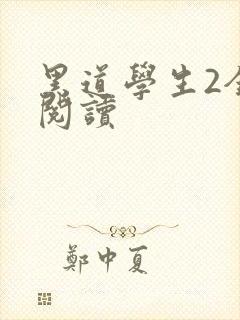 黑道學生2全
閱讀
鄭中夏